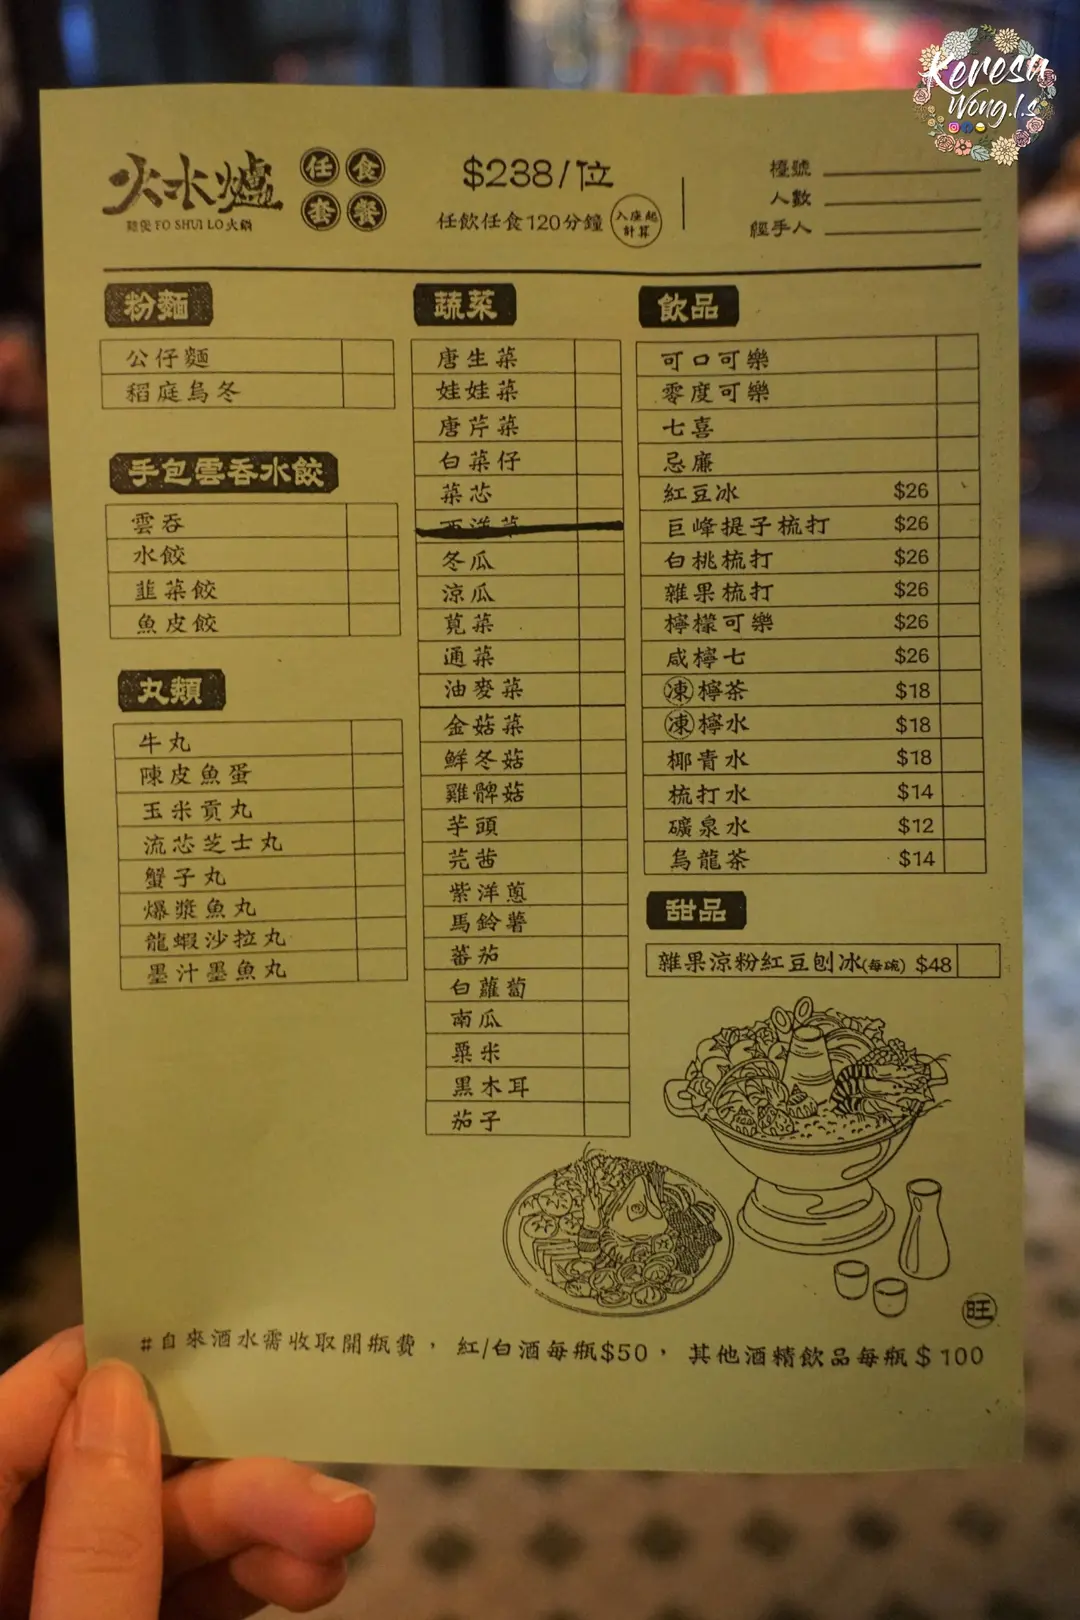 Keresa
Wong.l.s
火水爐
雞煲 FO SHUI LO 火鍋
任食
套餐
$238/位
任飲任食120分鐘
入座起
計算
檯號
人數
經手人
粉麵
公仔麵
稻庭烏冬
手包雲吞水餃
雲吞
水餃
韮菜餃
魚皮餃
丸類
牛丸
陳皮魚蛋
玉米貢丸
流芯芝士丸
蟹子丸
爆漿魚丸
龍蝦沙拉丸
墨汁墨魚丸
蔬菜
唐生菜
娃娃菜
唐芹菜
白菜仔
菜芯
西洋菜
冬瓜
涼瓜
莧菜
通菜
油麥菜
金菇菜
鮮冬菇
雞髀菇
芋頭
芫茜
紫洋蔥
馬鈴薯
蕃茄
白蘿蔔
南瓜
粟米
黑木耳
茄子
飲品
可口可樂
零度可樂
七喜
忌廉
紅豆冰 $26
巨峰提子梳打 $26
白桃梳打 $26
雜果梳打 $26
檸檬可樂 $26
咸檸七 $26
凍檸茶 $18
凍檸水 $18
椰青水 $18
梳打水 $14
礦泉水 $12
烏龍茶 $14
甜品
雜果涼粉紅豆刨冰(每碗) $48
旺
#自來酒水需收取開瓶費，紅/白酒每瓶$50，其他酒精飲品每瓶$100